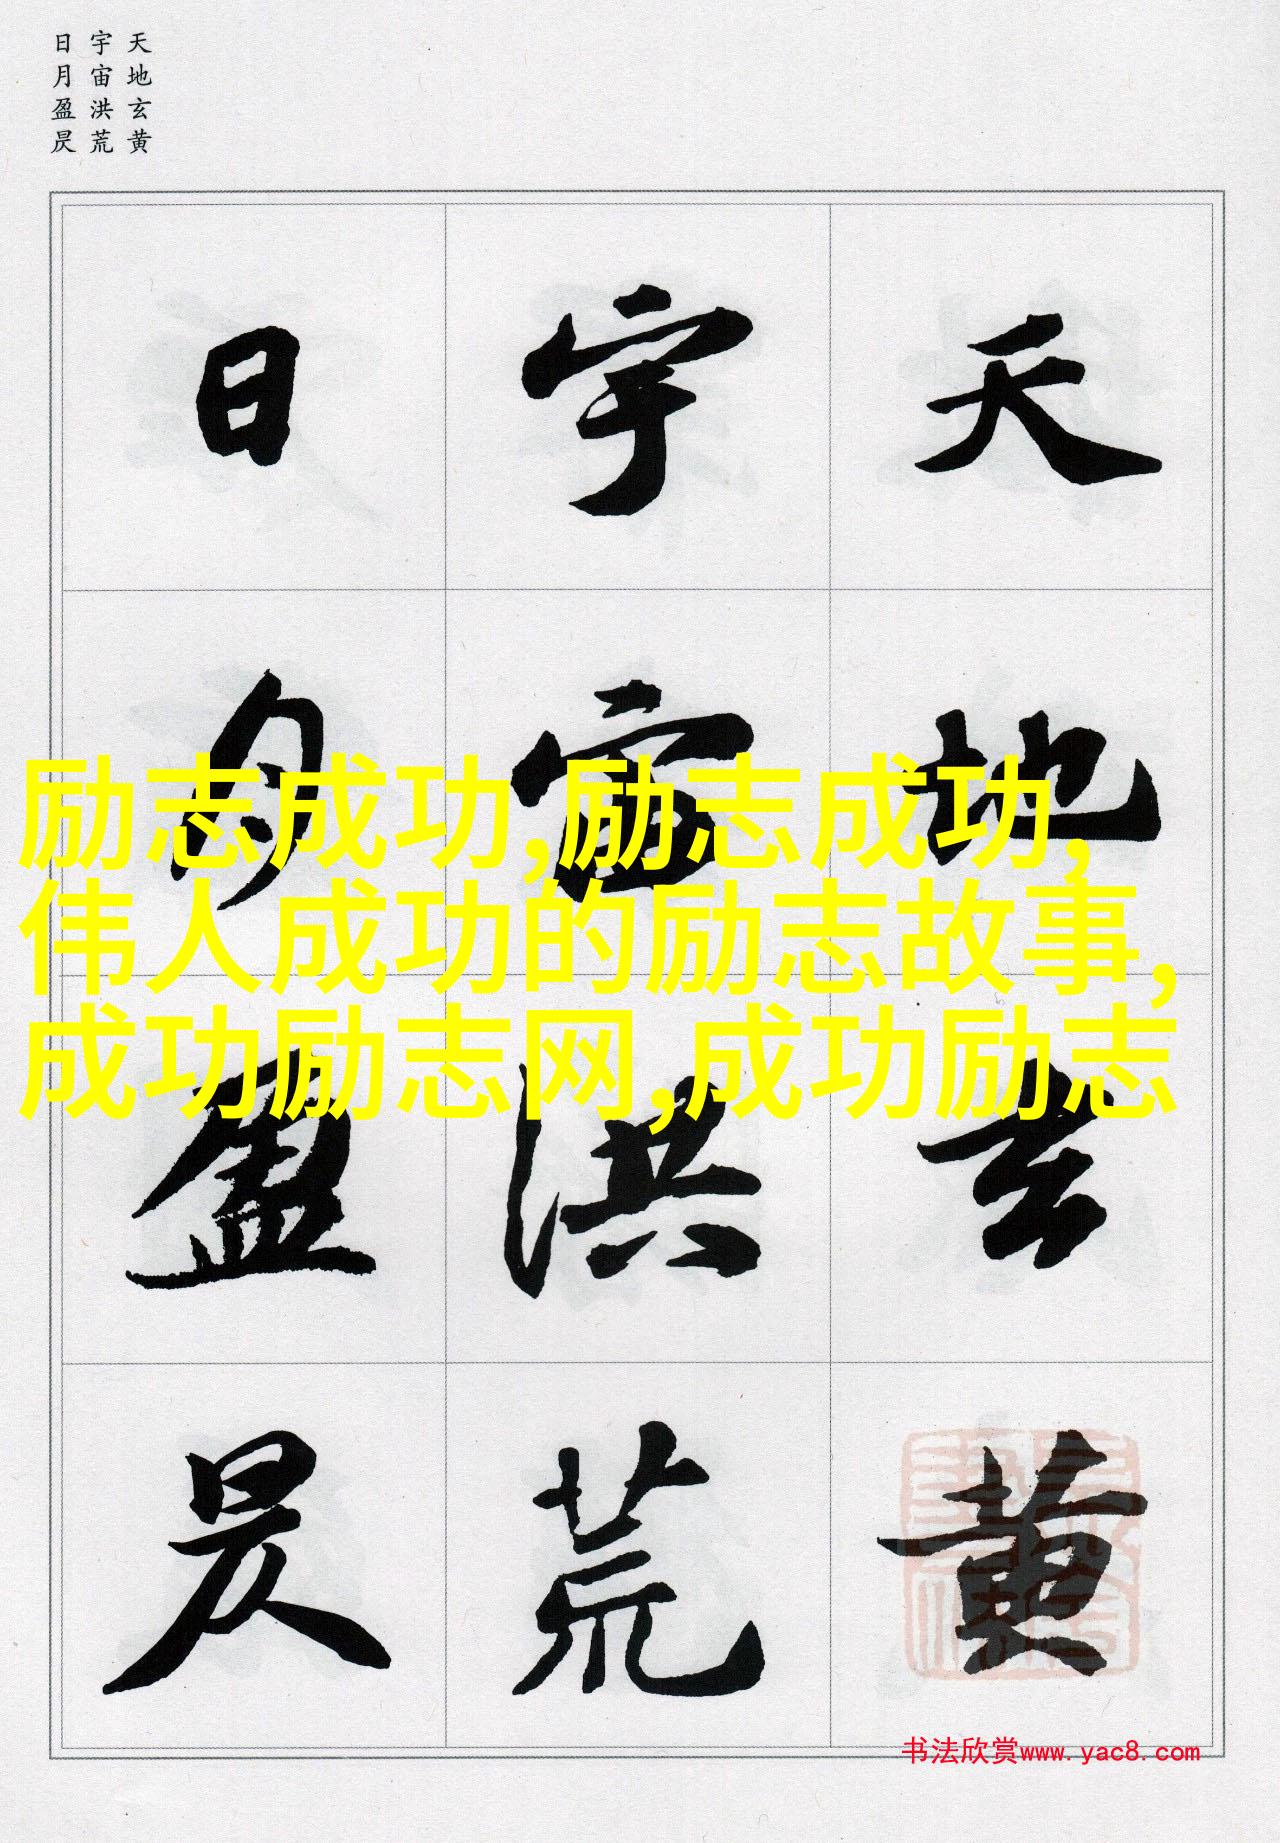 天地玄黄
宇宙洪荒
日月盈昃
天地玄黄
宇宙洪荒
日月盈昃
励志成功,励志成功,
伟人成功的励志故事,
成功励志网,成功励志
书法欣赏www.yac8.com